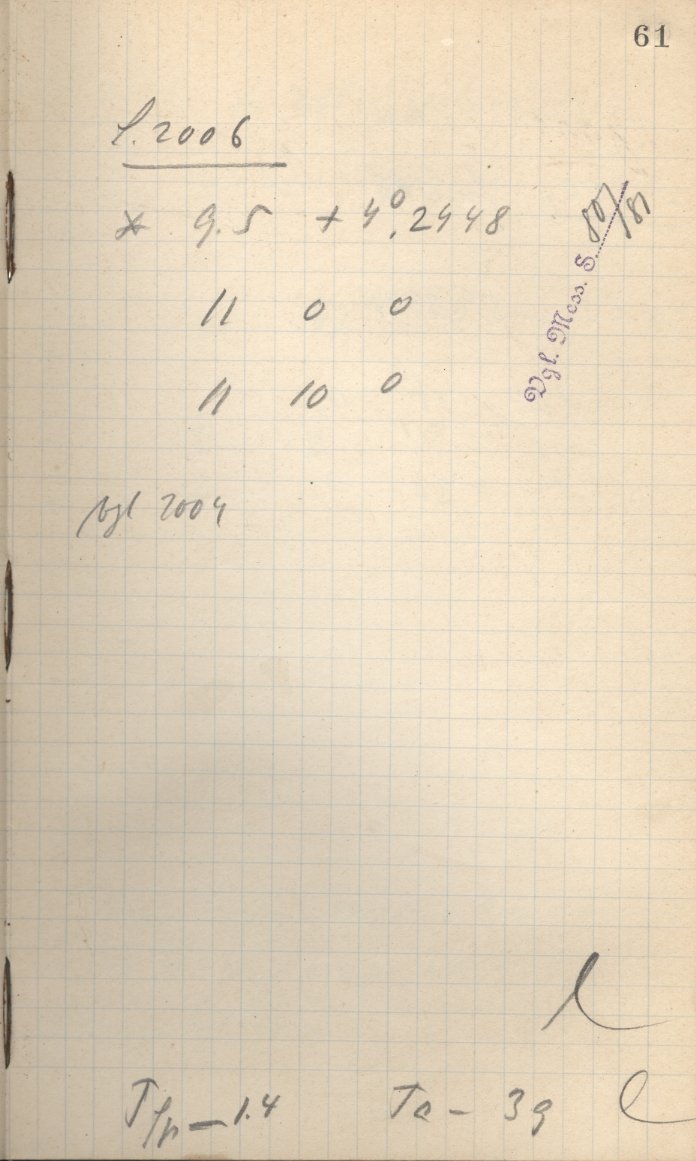 61
l. 2006
* 9.5 + 4°.2448
11 0 0
11 10 0
Vgl. Mess. S. 80/81
vgl 2004
l
l
T — 1.4 Ta – 39